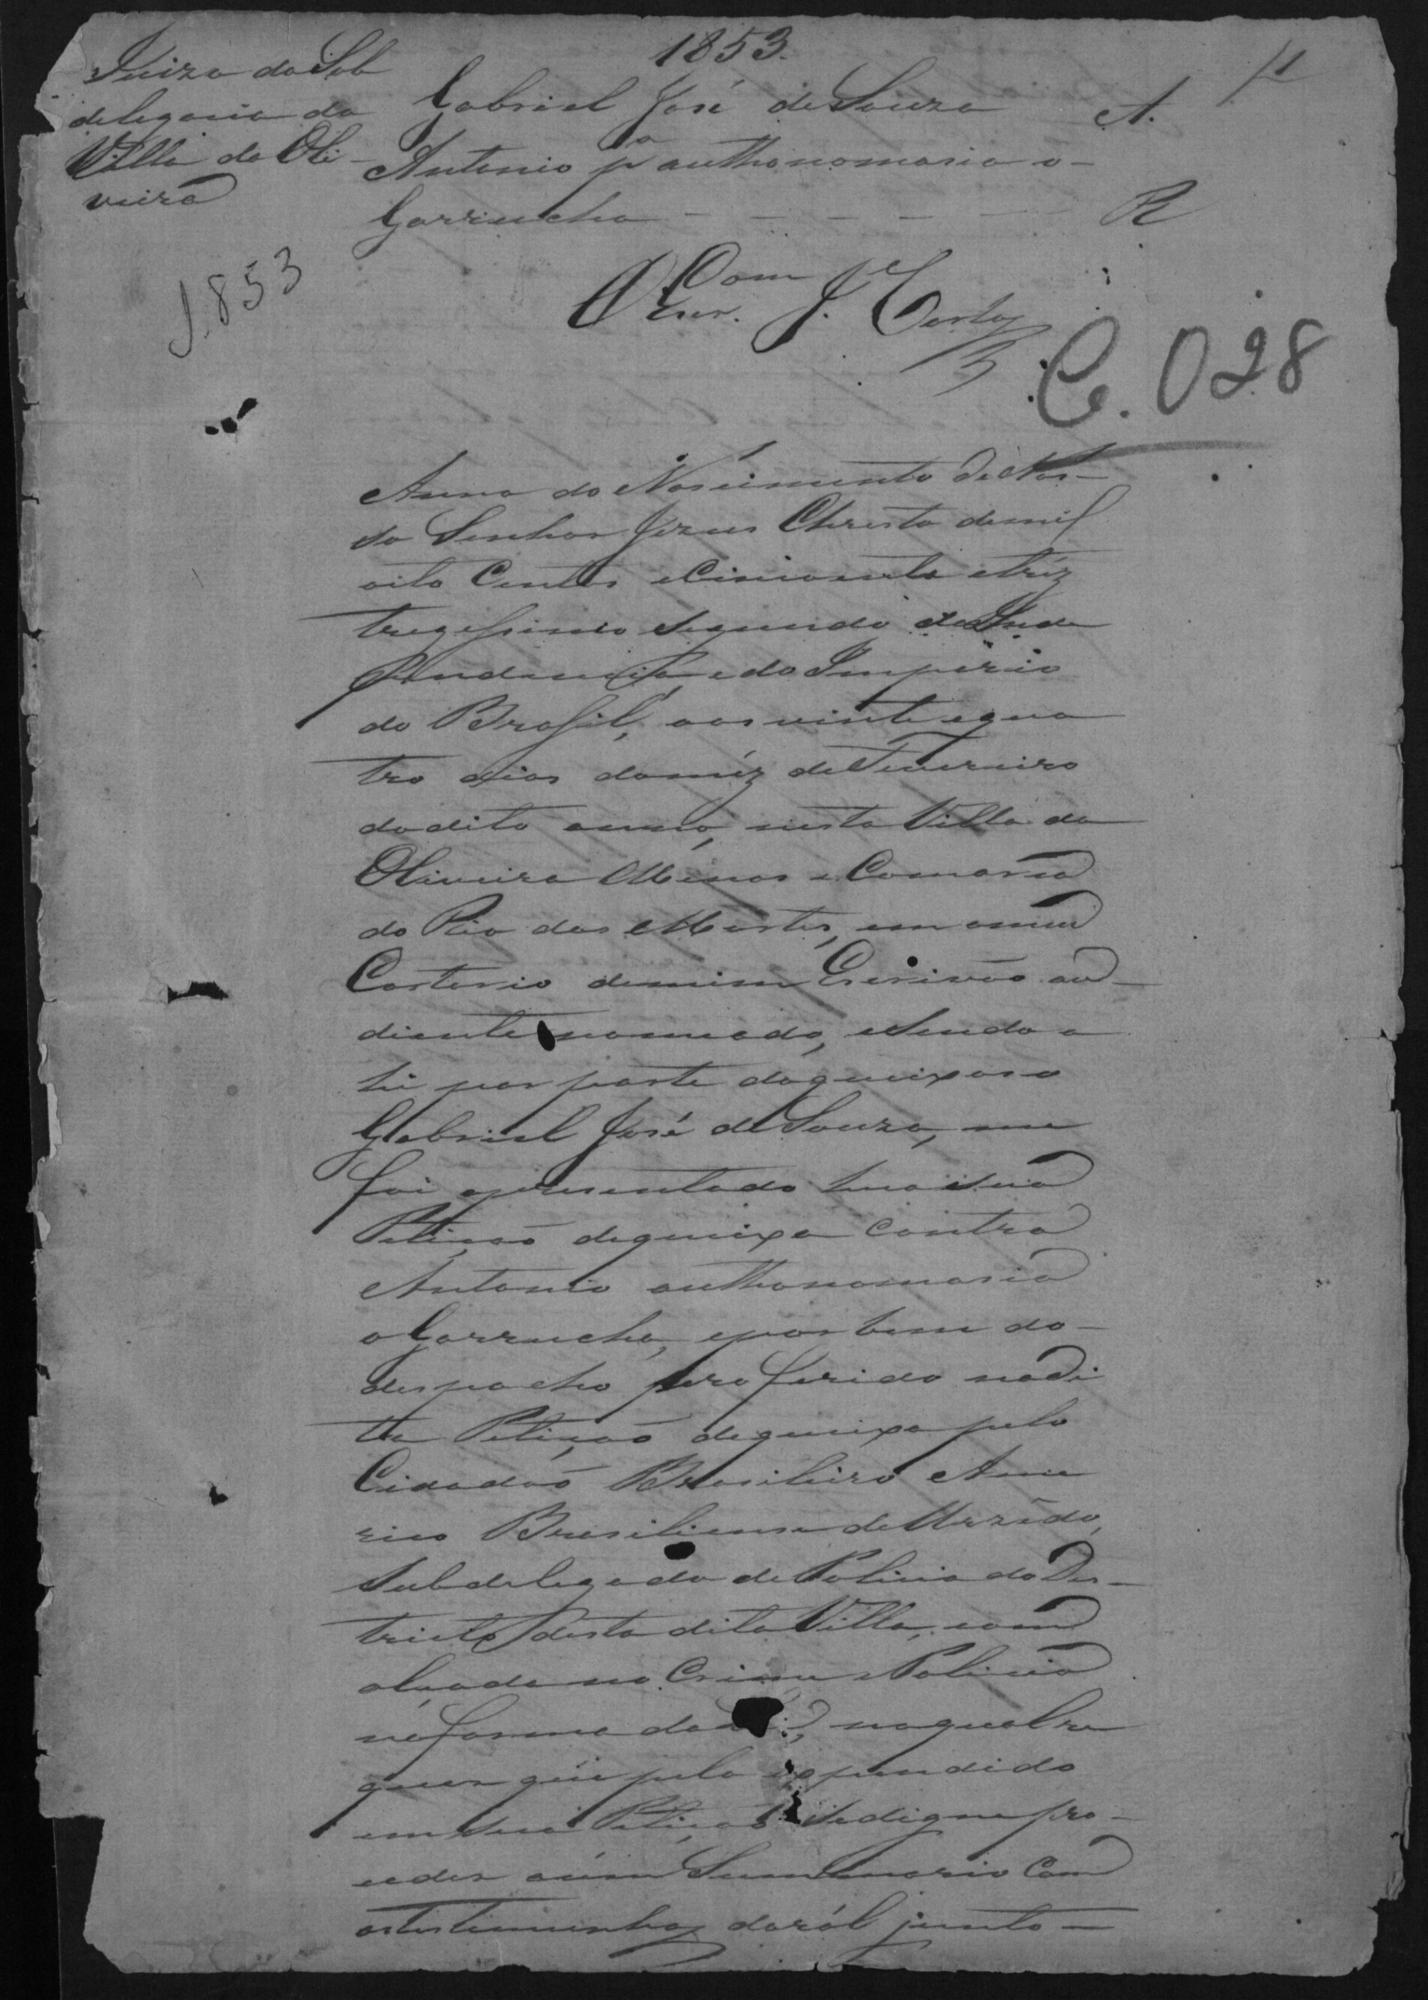 1853.
1
Juizo da Sub
delegacia da
Villa da Oli-
veira
Gabriel José de Souza A.
Antonio p.r anthonomasia o-
Garrucha - - - - - R
1853
O Escr.
C. 028
Anno do Nascimento de Nos-
so Senhor Jezus Christo de mil
oito Centos e Cincoenta e tréz
tregessimo segundo da Inde
pendencia e do Imperio
do Brasil, aos vinte e qua
tro dias do méz de Fevereiro
do dito anno, nesta Villa da
Oliveira Minas e Comarca
do Rio das Mortes, em o meu
Cartorio de mim Escrivão ao
diente nomeado, e sendo a
hi por parte do queixoso
Gabriel José de Souza, me
foi apresentado hua sua
Petiçaõ de queixa contra
Antonio anthonomasia
o Garrucha, e por bem do-
despacho proferido na di
ta Petiçaõ de queixa pelo
Cidadaõ Brasileiro Ame
rico Brasiliense
Subdelegado de Policia do Des-
tricto desta dita Villa, com
alçada no Crime e Policia
na forma da na qual re
quer que pelo expendido
em sua Petiçaõ se digne pro-
ceder a úm Summario Com
as testimunhas do ról junto-